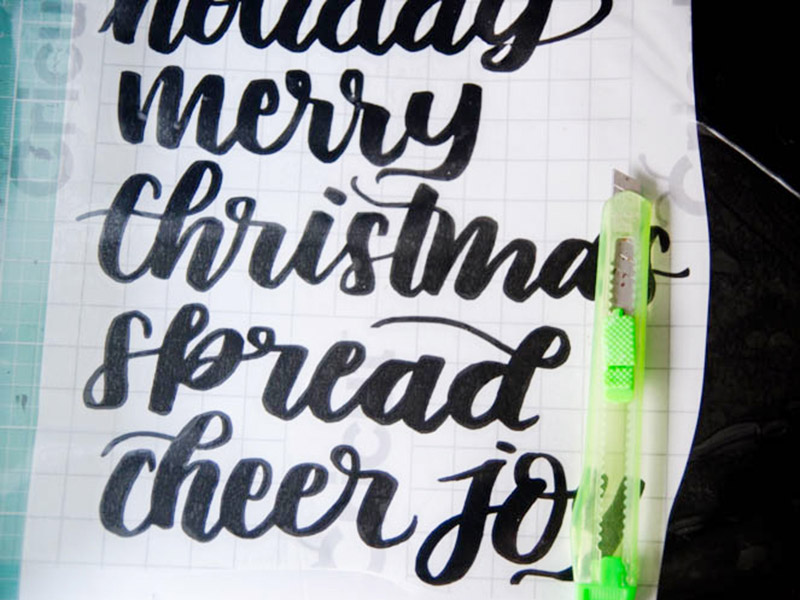 holiday
merry
Christmas
spread
cheer joy
Cricut